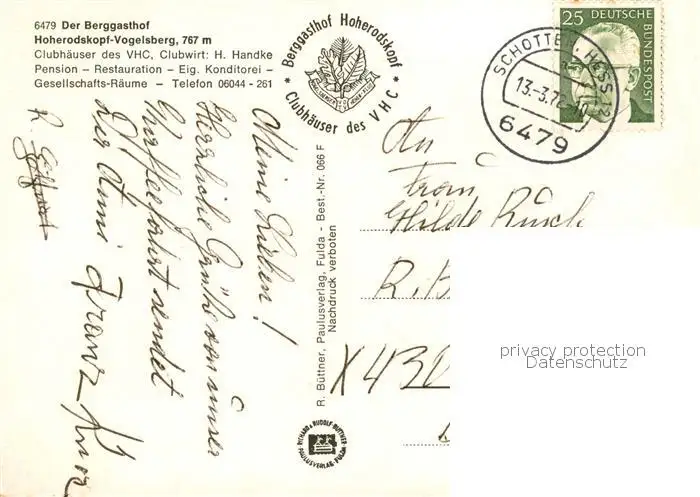 6479 Der Berggasthof
Hoherodskopf-Vogelsberg, 767 m
Clubhäuser des VHC, Clubwirt: H. Handke
Pension – Restauration – Eig. Konditorei –
Gesellschafts-Räume – Telefon 06044 - 261
* Berggasthof Hoherodskopf *
Clubhäuser des VHC
25 DEUTSCHE
BUNDESPOST
SCHOTTEN, HESS 12
13.-3.72-10
6479
Meine Lieben!
Herrliche Grüße von unser
Kaffeefahrt sendet
Franz
R. Büttner, Paulusverlag, Fulda - Best.-Nr. 066 F
Nachdruck verboten
RICHARD & RUDOLF BÜTTNER
PAULUSVERLAG FULDA
An
Frau
Hilde
R.B
X 430
privacy protection
Datenschutz